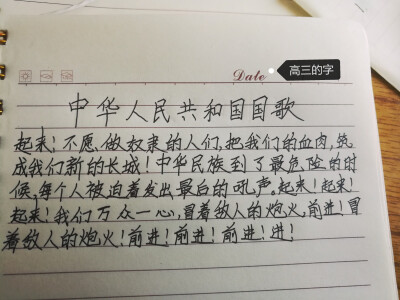 Date
高三的字
中华人民共和国国歌
起来!不愿做奴隶的人们,把我们的血肉,筑
成我们新的长城!中华民族到了最危险的时
候,每个人被迫着发出最后的吼声。起来!起来!
起来!我们万众一心,冒着敌人的炮火,前进!冒
着敌人的炮火!前进!前进!前进!进!